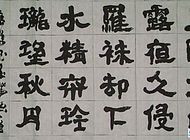 露夜久侵
羅袜却下
水精帘玲
瓏望秋月